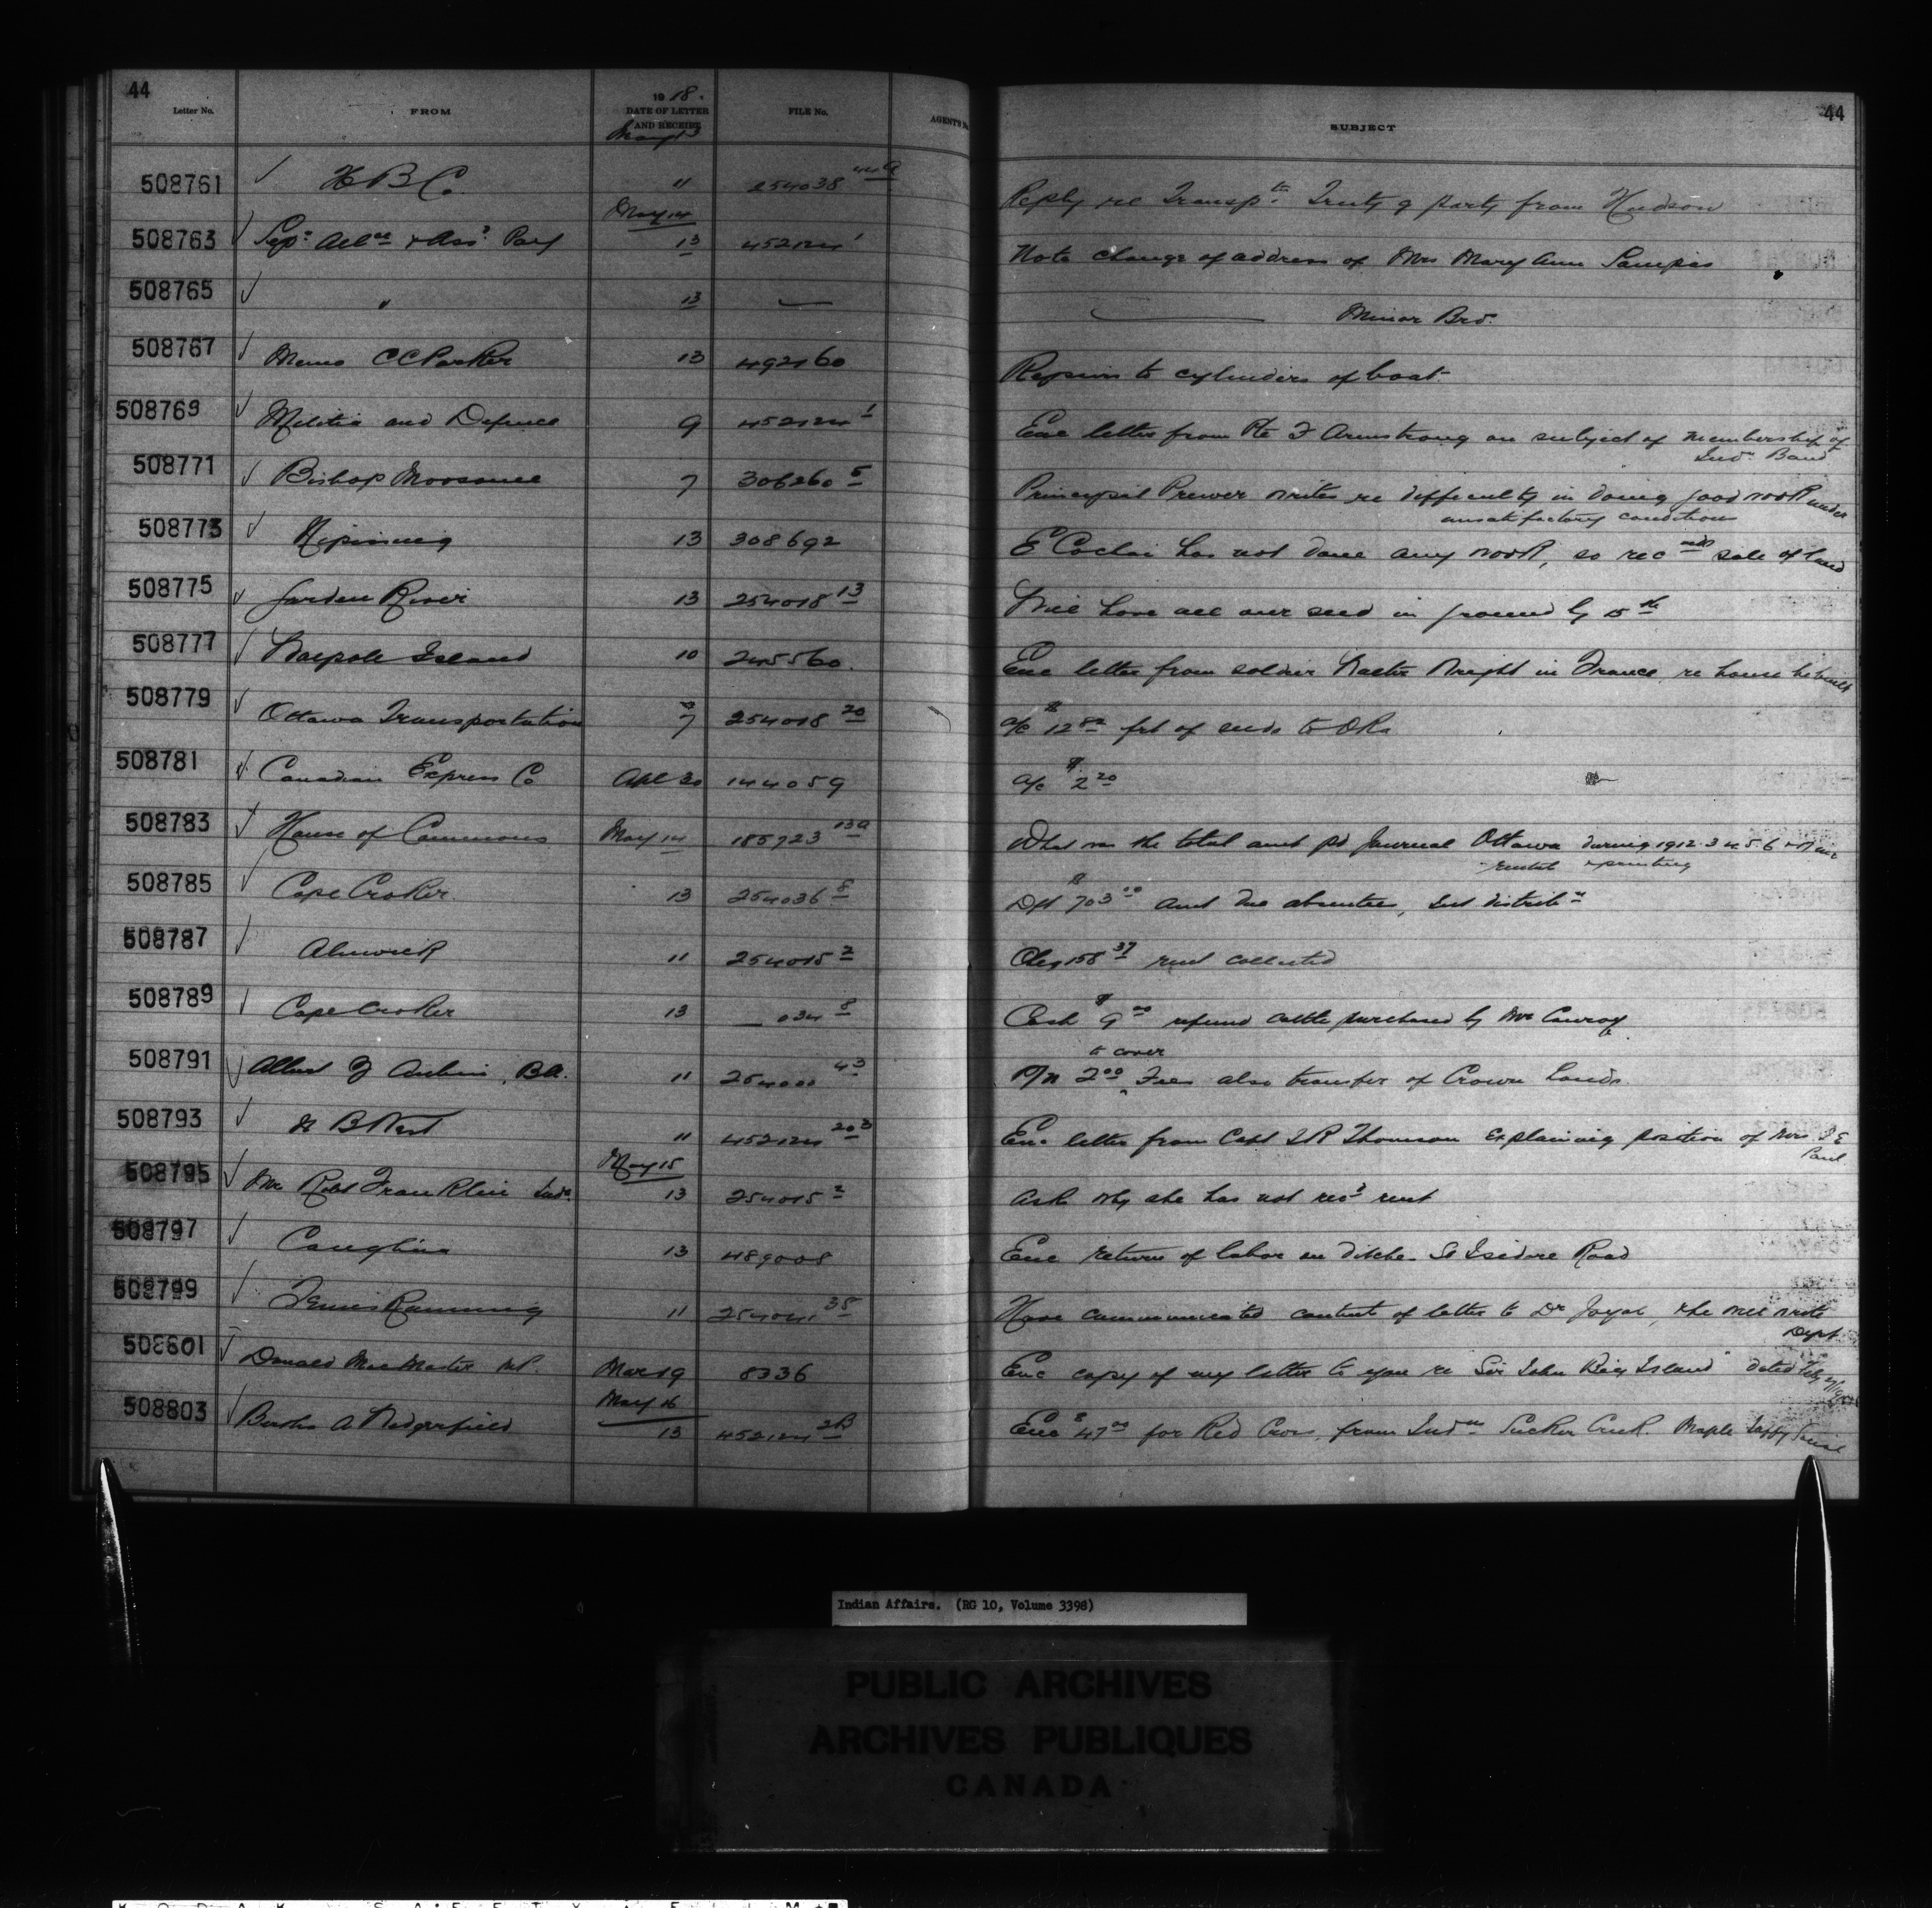 44
Letter No. FROM 1918. DATE OF LETTER AND RECEIPT FILE No. AGENT'S SUBJECT 44
May 13
508761 H B Co. 11 254038 44a Reply re Transp tn Treaty party from Hudson
May 14
508763 Sep. & Ass. Pay 13 452124 1 Note change of address of Mrs Mary Ann
508765 " 13 — — Minor Bro.
508767 Memo C C Parker 13 492160 Repairs to cylinders of boat
508769 Militia and Defence 9 452124 1 Enc letter from Pte F Armstrong on subject of membership of
Ind. Band
508771 Bishop Moosonee 7 306260 5 Principal Prewer writes re difficulty in doing good work under
unsatisfactory conditions
508773 Nipissing 13 308692 E has not done any work, so rec mds sale of land
508775 Garden River 13 254018 13 Will have all our seed in ground by 15 th
508777 Walpole Island 10 245560. Enc letter from soldier Wright in France, re house he built
508779 Ottawa Transportation 7 254018 20 a/c $12 82 frt of seeds to
508781 Canadian Express Co Apl 30 144059 a/c $2 20
508783 House of Commons May 14 185723 13a What was the total amt pd Journal Ottawa during 1912 3 4 5 6
rental & printing
508785 Cape Croker. 13 254036 8 Dft $703 00 amt due absentees, distrib n
508787 Alnwick 11 254015 2 Cheq 158 37 rent collected
508789 Cape Croker 13 — 034 8 Cash $9 00 refund cattle purchased by Mr Conroy
to cover
508791 Albert Aubin, BA. 11 254000 43 P/N 2 00 Fees also transfer of Crown Lands.
508793 11 452124 20 3 Enc letter from Capt Thomson explaining position of Mrs
Paul
May 15
508795 Mrs Robt Franklin 13 254015 2 Ask why she has not rec d rent
508797 Coughlin 13 489008 Enc return of labor on ditche St Isidore Road
508799 Running 11 38 Have communicated content of letter to Dr Joyal, she wrote
Dept
508801 Donald MacMaster M.P. Mar 19 8336 Enc copy of my letter to you re "Sir John Bieg Island" dated
May 16
508803 A 13 452124 2B Enc $47 00 for Red Cross, from Ind ns Sucker Creek. Maple Taffy Social
Indian Affairs. (RG 10, Volume 3398)
PUBLIC ARCHIVES
ARCHIVES PUBLIQUES
CANADA